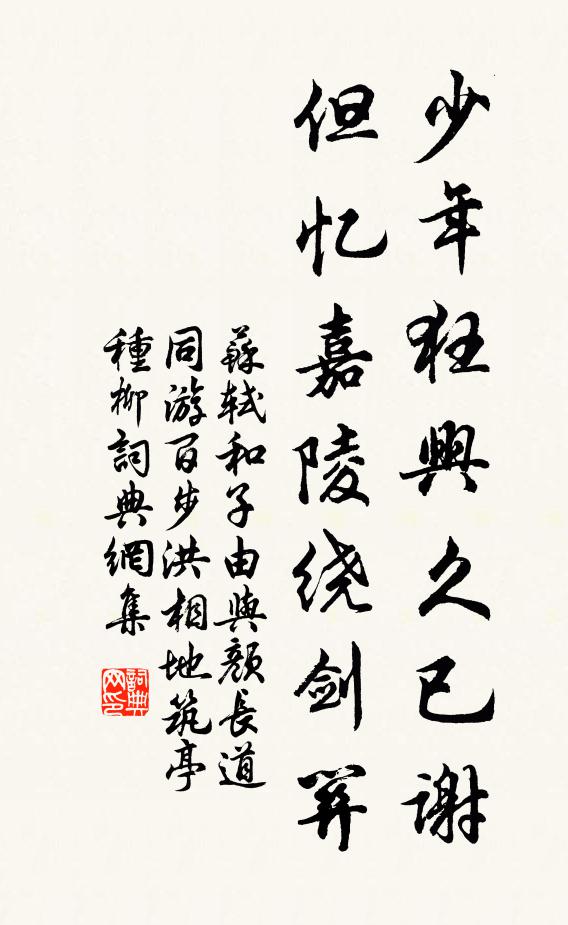 少年狂興久已谢
但忆嘉陵绕剑關
蘇軾和子由與顏長道
同游百步洪相地筑亭
種柳詞典網集
詞典网印